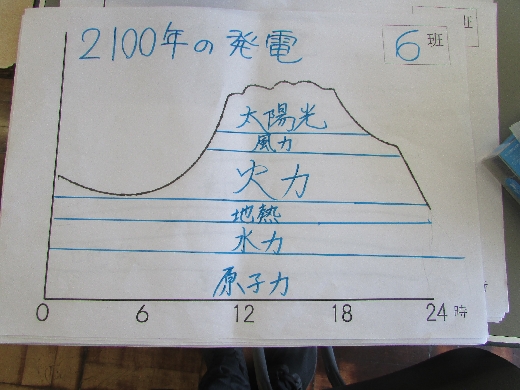 2100年の発電
6班
太陽光
風力
火力
地熱
水力
原子力
0 6 12 18 24時